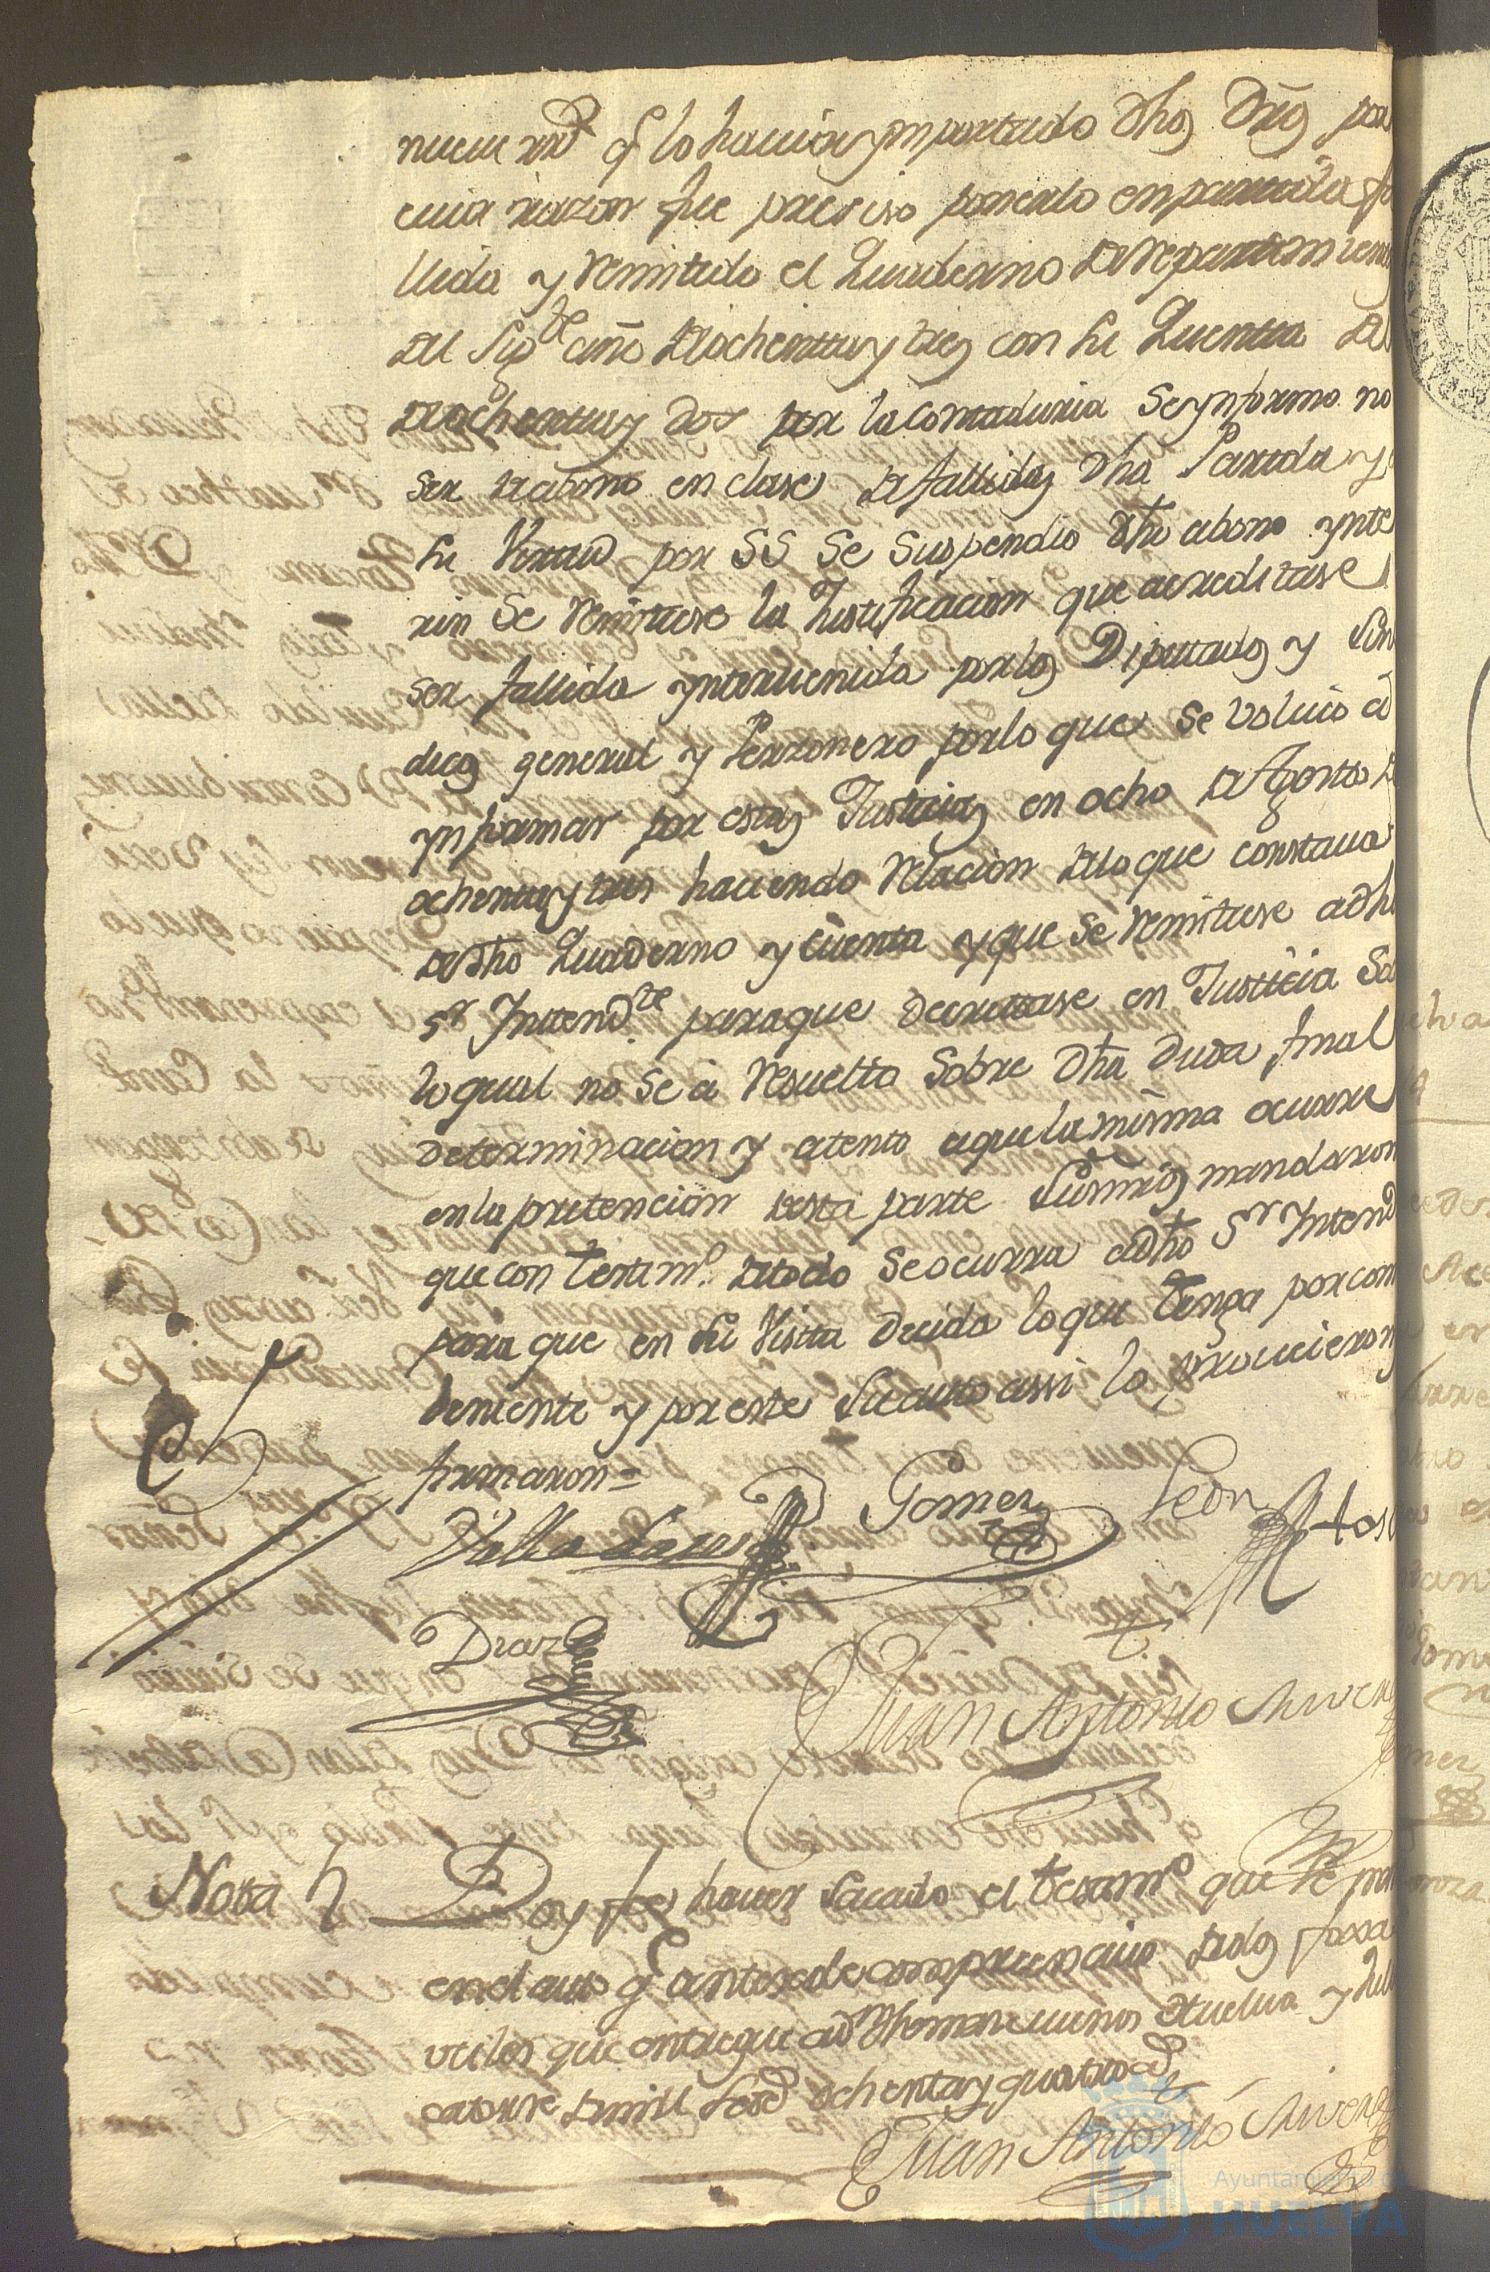 nueve rr.s q.e lo havian ymportado dhos Dros por
cuia razon fue preciso ponerlo en partida fa
llida y remitido el Quaderno de repartimiento
del sig.te año de ochenta y tres con su Quenta del
de ochenta y dos por la Contaduria se ynformo no
ser de abono en clase de fallidas dha Partida y
su Virtud por SS se suspendio dho abono ynte
rin se remitiese la Justificacion que acreditase
ser fallida yntervenida por los Diputados y Sin
dicos general y Perzonero por lo que se volvio a
ynformar por estas Justicias en ocho de Agosto de
ochenta y tres haciendo relacion de lo que constava
de dho Quaderno y cuenta y que se remitiese a dho
S.r Intend.te para que decretase en Justicia So
lo qual no se a resuelto sobre dha duda final
determinacion y atento a que la misma ocurre
en la pretencion desta parte Sus mrds mandaron
que con testim.o de todo se ocurra a dho S.r Intend
para que en su Vista decida lo que tenga por con
beniente y por este su auto assi lo proveieron y
firmaron=
Villa
Gomez
Leon
Diaz
Juan Antonio River
Nota
Doy fee haver sacado el testim.o que se pre
en el auto q.e antesede comprencivo de dos foxa
utiles que entregue a d.n Huelva y Jul
catorze de mill set.s ochenta y quatro a.s
Juan Antonio River
Ayuntamiento de
HUELVA